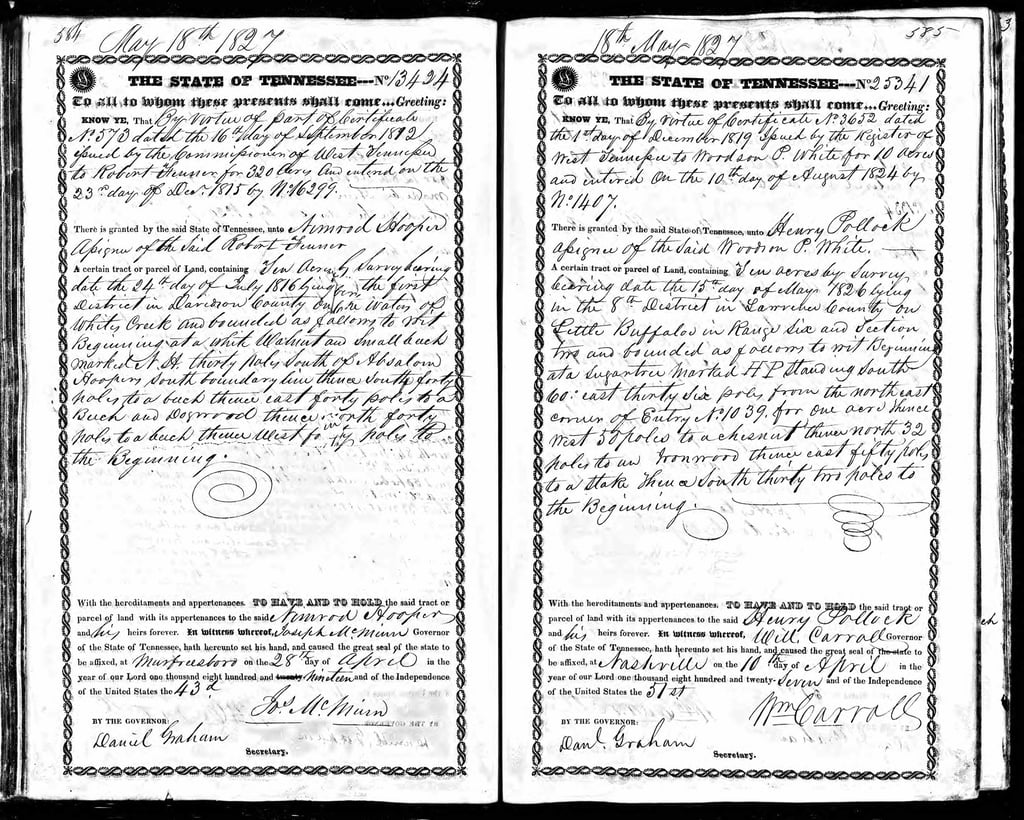 584
May 18th 1827
THE STATE OF TENNESSEE---No 13424
To all to whom these presents shall come... Greeting:
KNOW YE, That By Virtue of part of Certificate
No 573 dated the 16th day of September 1812
issued by the Commissioner of West Tennessee
to Robert Fenner for 320 Acres and entered on the
23d day of Decr. 1815 by No 16299.
There is granted by the said State of Tennessee, unto Nimrod Hooper
Assignee of the Said Robert Fenner
A certain tract or parcel of Land, containing Ten Acres by Survey bearing
date the 24th day of July 1816 lying in the first
District in Davidson County on the Waters of
Whites Creek and bounded as follows to wit
Beginning at a White Walnut and Small buch
marked N. H. thirty poles South of Absalom
Hoopers South boundary line thence South forty
poles to a buch thence east forty poles to a
Buch and Dogwood thence north forty
poles to a buch thence West forty poles to
the Beginning.
With the hereditaments and appertenances. TO HAVE AND TO HOLD the said tract or
parcel of land with its appertenances to the said Nimrod Hooper
and his heirs forever. In witness whereof, Joseph McMinn Governor
of the State of Tennessee, hath hereunto set his hand, and caused the great seal of the state to
be affixed, at Murfreesboro on the 28th day of April in the
year of our Lord one thousand eight hundred and twenty Nineteen and of the Independence
of the United States the 43d
Jos. McMinn
BY THE GOVERNOR:
Daniel Graham
Secretary.
585
18th May 1827
THE STATE OF TENNESSEE---No 25341
To all to whom these presents shall come... Greeting:
KNOW YE, That By Virtue of Certificate No 3652 dated
the 1st day of December 1819 Issued by the Register of
West Tennessee to Woodson P. White for 10 acres
and entered on the 10th day of August 1824 by
No 1407.
There is granted by the said State of Tennessee, unto Henry Pollock
assignee of the Said Woodson P. White.
A certain tract or parcel of Land, containing Ten acres by Survey
bearing date the 15th day of May 1826 lying
in the 8th District in Lawrence County on
Little Buffaloe in Range Six and Section
two and bounded as follows to wit Beginning
at a Sugartree Marked H P Standing South
60° east thirty Six poles from the north east
corner of Entry No 1039. for one acre Thence
West 50 poles to a chesnut thence north 32
poles to an Ironwood thence east fifty poles
to a Stake Thence South thirty two poles to
the Beginning.
With the hereditaments and appertenances. TO HAVE AND TO HOLD the said tract or
parcel of land with its appertenances to the said Henry Pollock
and his heirs forever. In witness whereof, Will Carroll Governor
of the State of Tennessee, hath hereunto set his hand, and caused the great seal of the state to
be affixed, at Nashville on the 10th day of April in the
year of our Lord one thousand eight hundred and twenty-Seven and of the Independence
of the United States the 51st
Wm Carroll
BY THE GOVERNOR:
Danl. Graham
Secretary.